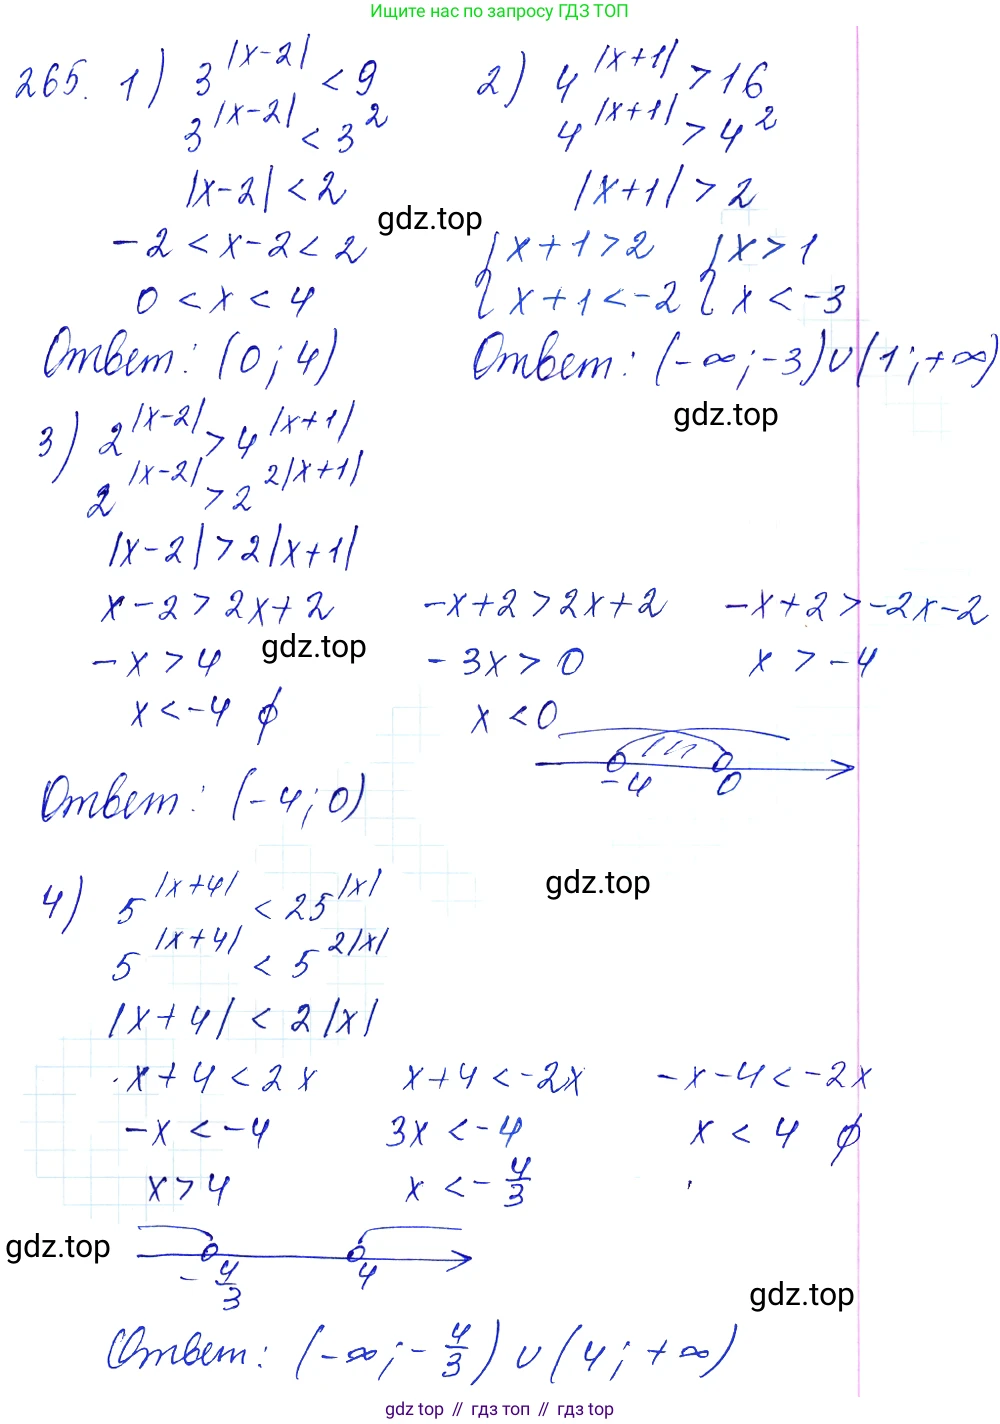 Ищите нас по запросу ГДЗ ТОП
265. 1) 3^|x-2| < 9
3^|x-2| < 3^2
|x-2| < 2
gdz.top
-2 < x-2 < 2
0 < x < 4
Ответ: (0; 4)
2) 4^|x+1| > 16
4^|x+1| > 4^2
|x+1| > 2
{ x+1 > 2 { x > 1
{ x+1 < -2 { x < -3
Ответ: (-∞; -3) ∪ (1; +∞)
gdz.top
3) 2^|x-2| > 4^|x+1|
2^|x-2| > 2^2|x+1|
|x-2| > 2|x+1|
x-2 > 2x+2 -x+2 > 2x+2 -x+2 > -2x-2
-x > 4 gdz.top -3x > 0 x > -4
x < -4 ∅ x < 0
-4 0
Ответ: (-4; 0)
4) 5^|x+4| < 25^|x|
gdz.top
5^|x+4| < 5^2|x|
|x+4| < 2|x|
x+4 < 2x x+4 < -2x -x-4 < -2x
-x < -4 3x < -4 x < 4 ∅
x > 4 x < -4/3
gdz.top
-4/3 4
gdz.top
Ответ: (-∞; -4/3) ∪ (4; +∞)
gdz top // гдз топ // гдз top